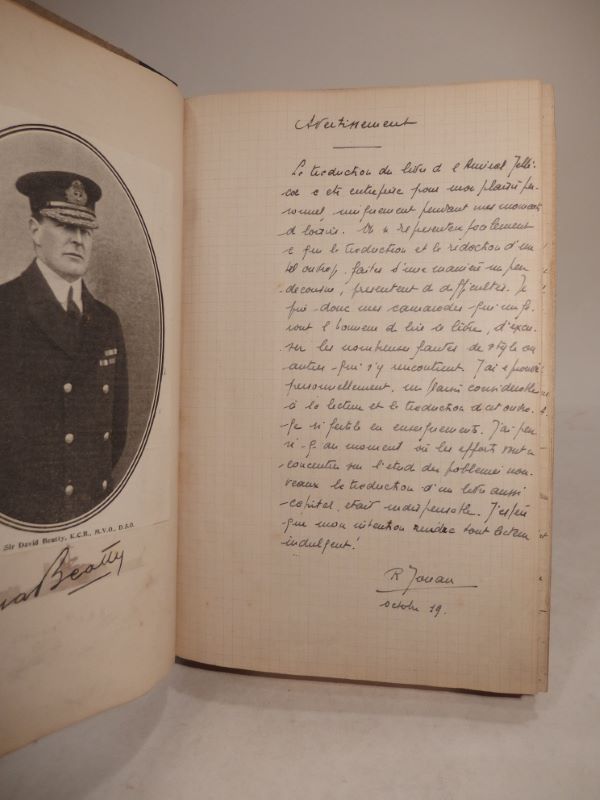 Sir David Beatty, K.C.B., M.V.O., D.S.O.
Beatty
Avertissement
La traduction du livre de l'Amiral Jelli-
coe a été entreprise pour mon plaisir per-
sonnel, uniquement pendant mes moments
de loisirs.
que la traduction et la rédaction d'un
tel ouvrage, faites d'une manière un peu
décousue, présentent de difficultés. Je
prie donc mes camarades qui me fe-
ront l'honneur de lire ce livre, d'excu-
ser les nombreuses fautes de style ou
autres qui s'y rencontrent. J'ai éprouvé
personnellement, un plaisir considérable
à la lecture et la traduction de cet ouvra-
ge si fertile en enseignements. J'ai pen-
sé qu'au moment où les efforts sont
concentrés sur l'étude des problèmes nou-
veaux la traduction d'un livre aussi
capital, était indispensable. J'espère
que mon intention rendra tout lecteur
indulgent!
R Jouan
octobre 19.